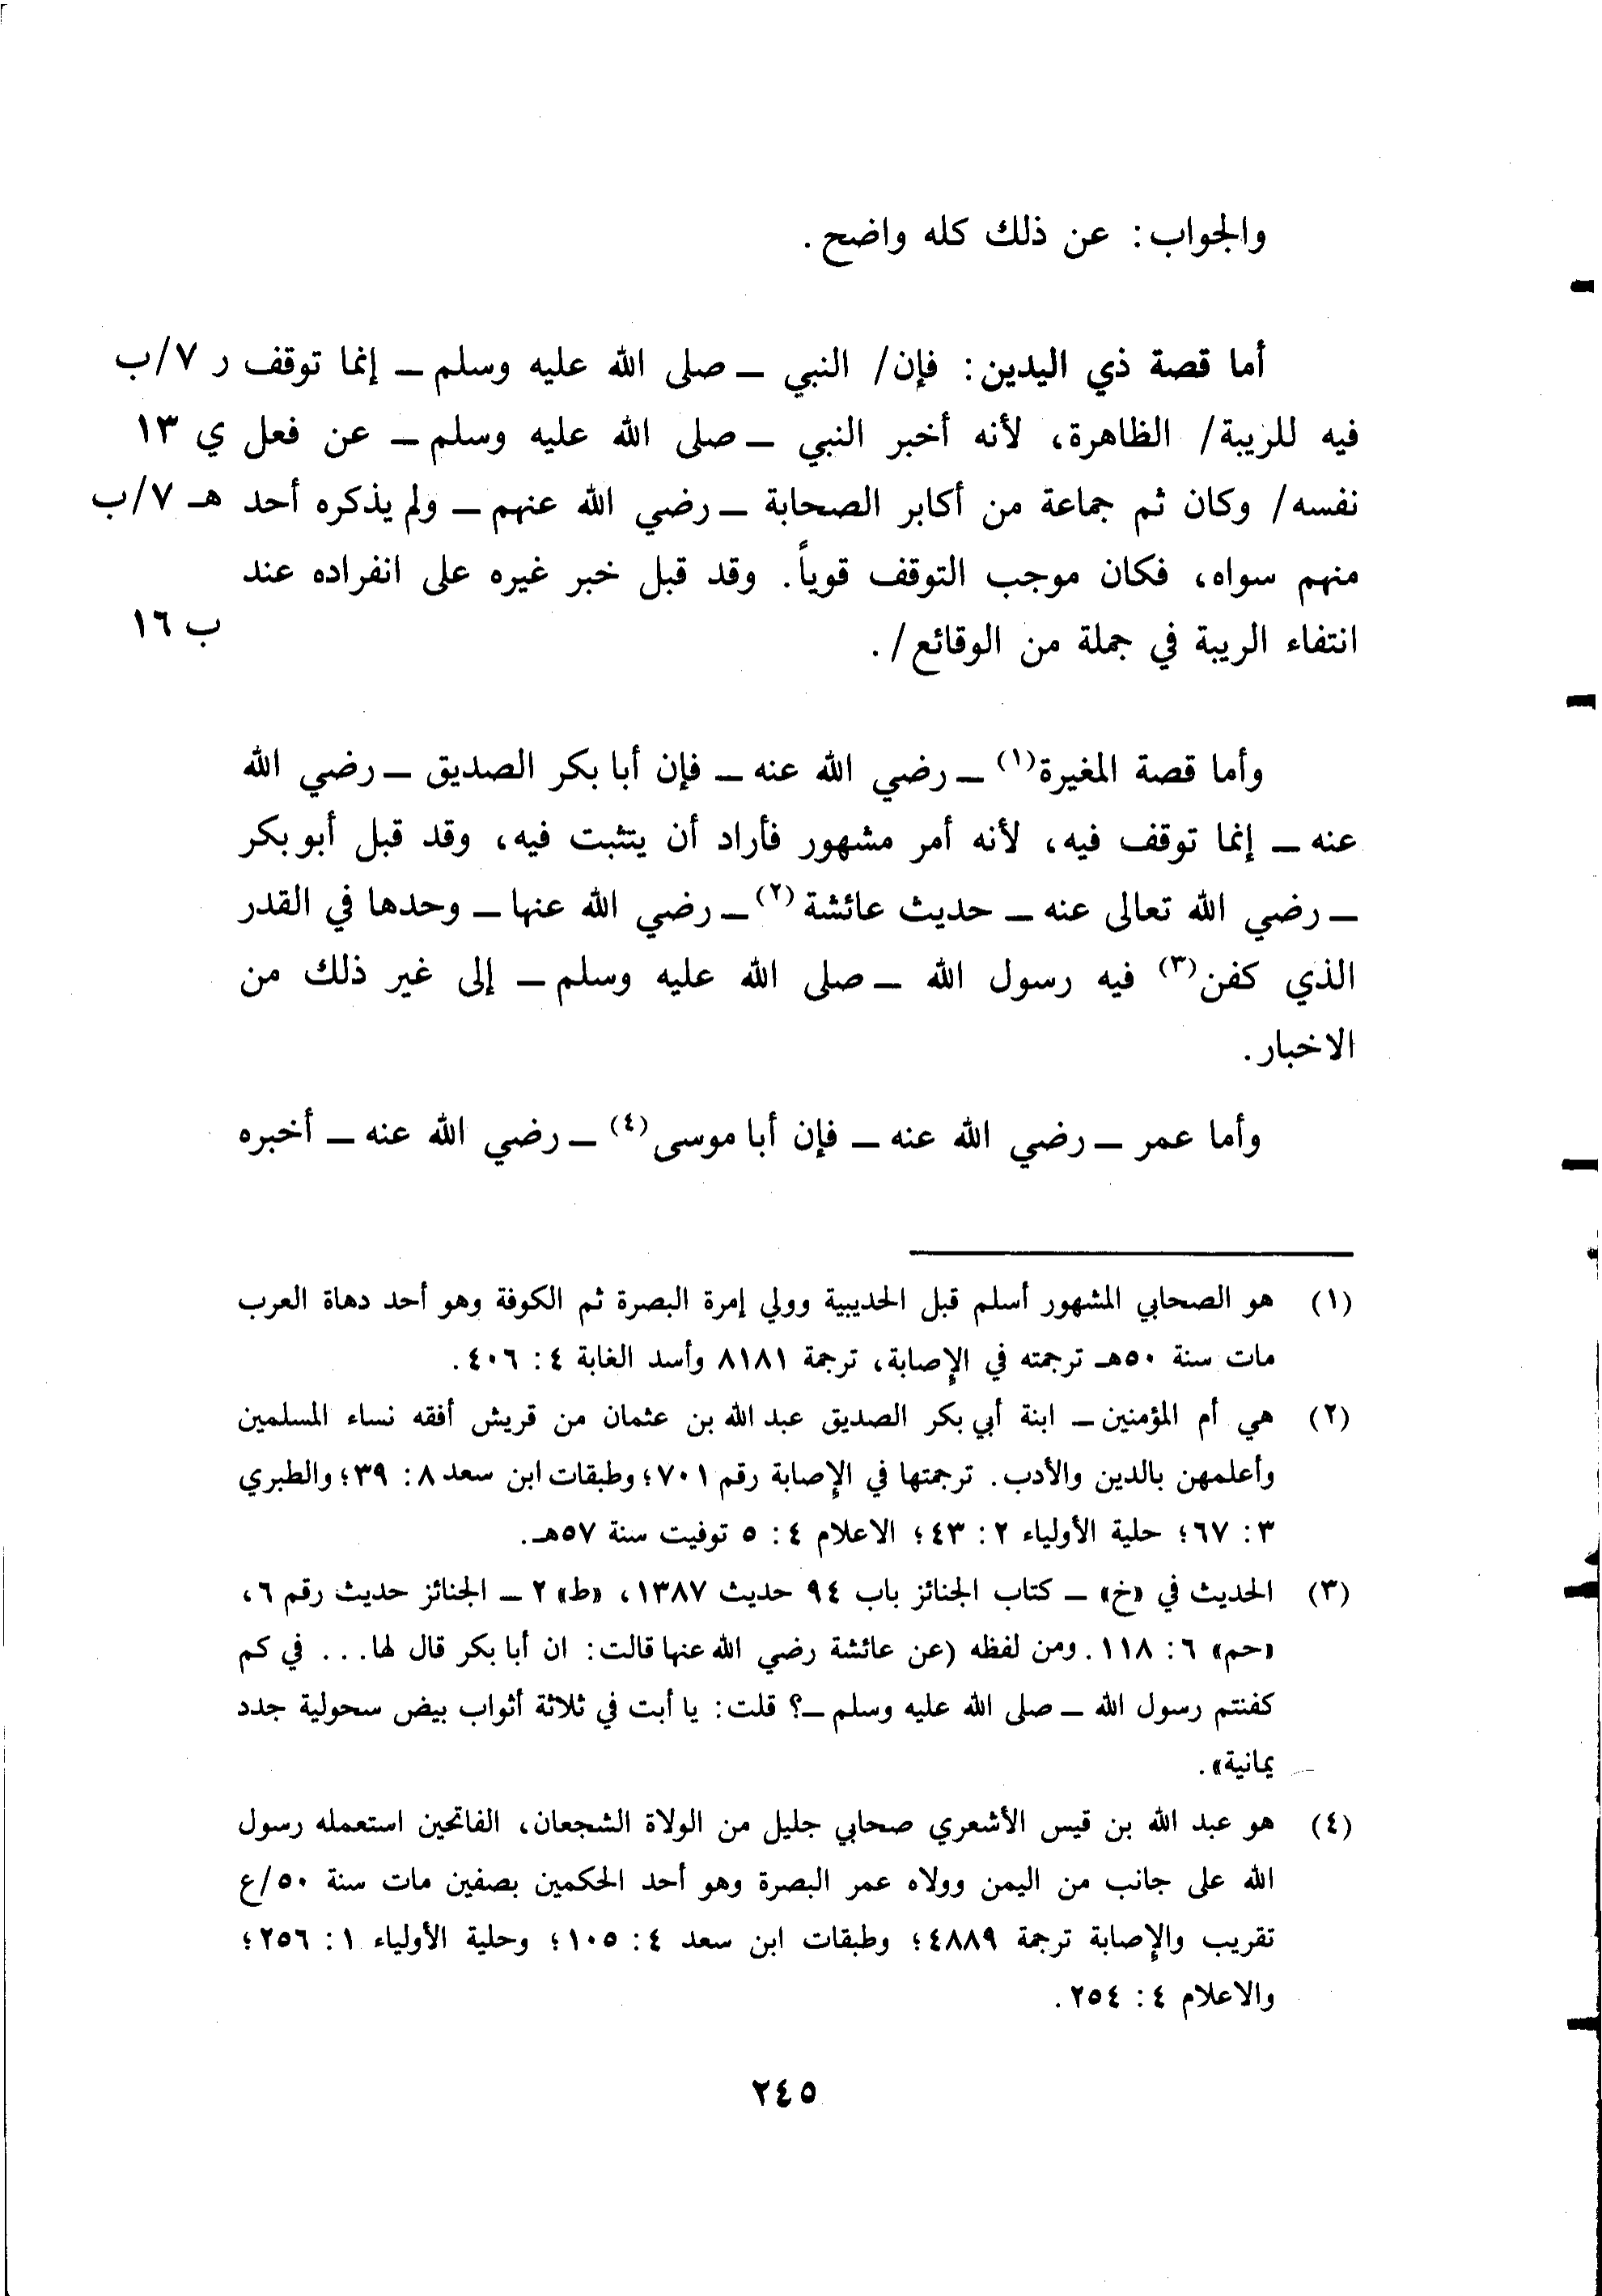 والجواب: عن ذلك كله واضح.
أما قصة ذي اليدين: فإن/ النبي – صلى الله عليه وسلم – إنما توقف ر ٧/ب
فيه للريبة/ الظاهرة، لأنه أخبر النبي – صلى الله عليه وسلم – عن فعل ي ١٣
نفسه/ وكان ثم جماعة من أكابر الصحابة – رضي الله عنهم – ولم يذكره أحد هـ ٧/ب
منهم سواه، فكان موجب التوقف قوياً. وقد قبل خبر غيره على انفراده عند
انتفاء الريبة في جملة من الوقائع/. ب ١٦
وأما قصة المغيرة(١) – رضي الله عنه – فإن أبا بكر الصديق – رضي الله
عنه – إنما توقف فيه، لأنه أمر مشهور فأراد أن يتثبت فيه، وقد قبل أبو بكر
– رضي الله تعالى عنه – حديث عائشة(٢) – رضي الله عنها – وحدها في القدر
الذي كفن(٣) فيه رسول الله – صلى الله عليه وسلم – إلى غير ذلك من
الاخبار.
وأما عمر – رضي الله عنه – فإن أبا موسى(٤) – رضي الله عنه – أخبره
(١) هو الصحابي المشهور أسلم قبل الحديبية وولي إمرة البصرة ثم الكوفة وهو أحد دهاة العرب
مات سنة ٥٠هـ ترجمته في الإصابة، ترجمة ٨١٨١ وأسد الغابة ٤: ٤٠٦.
(٢) هي أم المؤمنين – ابنة أبي بكر الصديق عبد الله بن عثمان من قريش أفقه نساء المسلمين
وأعلمهن بالدين والأدب. ترجمتها في الإصابة رقم ٧٠١؛ وطبقات ابن سعد ٨: ٣٩؛ والطبري
٣: ٦٧؛ حلية الأولياء ٢: ٤٣؛ الاعلام ٤: ٥ توفيت سنة ٥٧هـ.
(٣) الحديث في «خ» – كتاب الجنائز باب ٩٤ حديث ١٣٨٧، «ط» ٢ – الجنائز حديث رقم ٦،
«حم» ٦: ١١٨. ومن لفظه (عن عائشة رضي الله عنها قالت: ان أبا بكر قال لها... في كم
كفنتم رسول الله – صلى الله عليه وسلم –؟ قلت: يا أبت في ثلاثة أثواب بيض سحولية جدد
يمانية».
(٤) هو عبد الله بن قيس الأشعري صحابي جليل من الولاة الشجعان، الفاتحين استعمله رسول
الله على جانب من اليمن وولاه عمر البصرة وهو أحد الحكمين بصفين مات سنة ٥٠/ع
تقريب والإصابة ترجمة ٤٨٨٩؛ وطبقات ابن سعد ٤: ١٠٥؛ وحلية الأولياء ١: ٢٥٦؛
والاعلام ٤: ٢٥٤.
٢٤٥